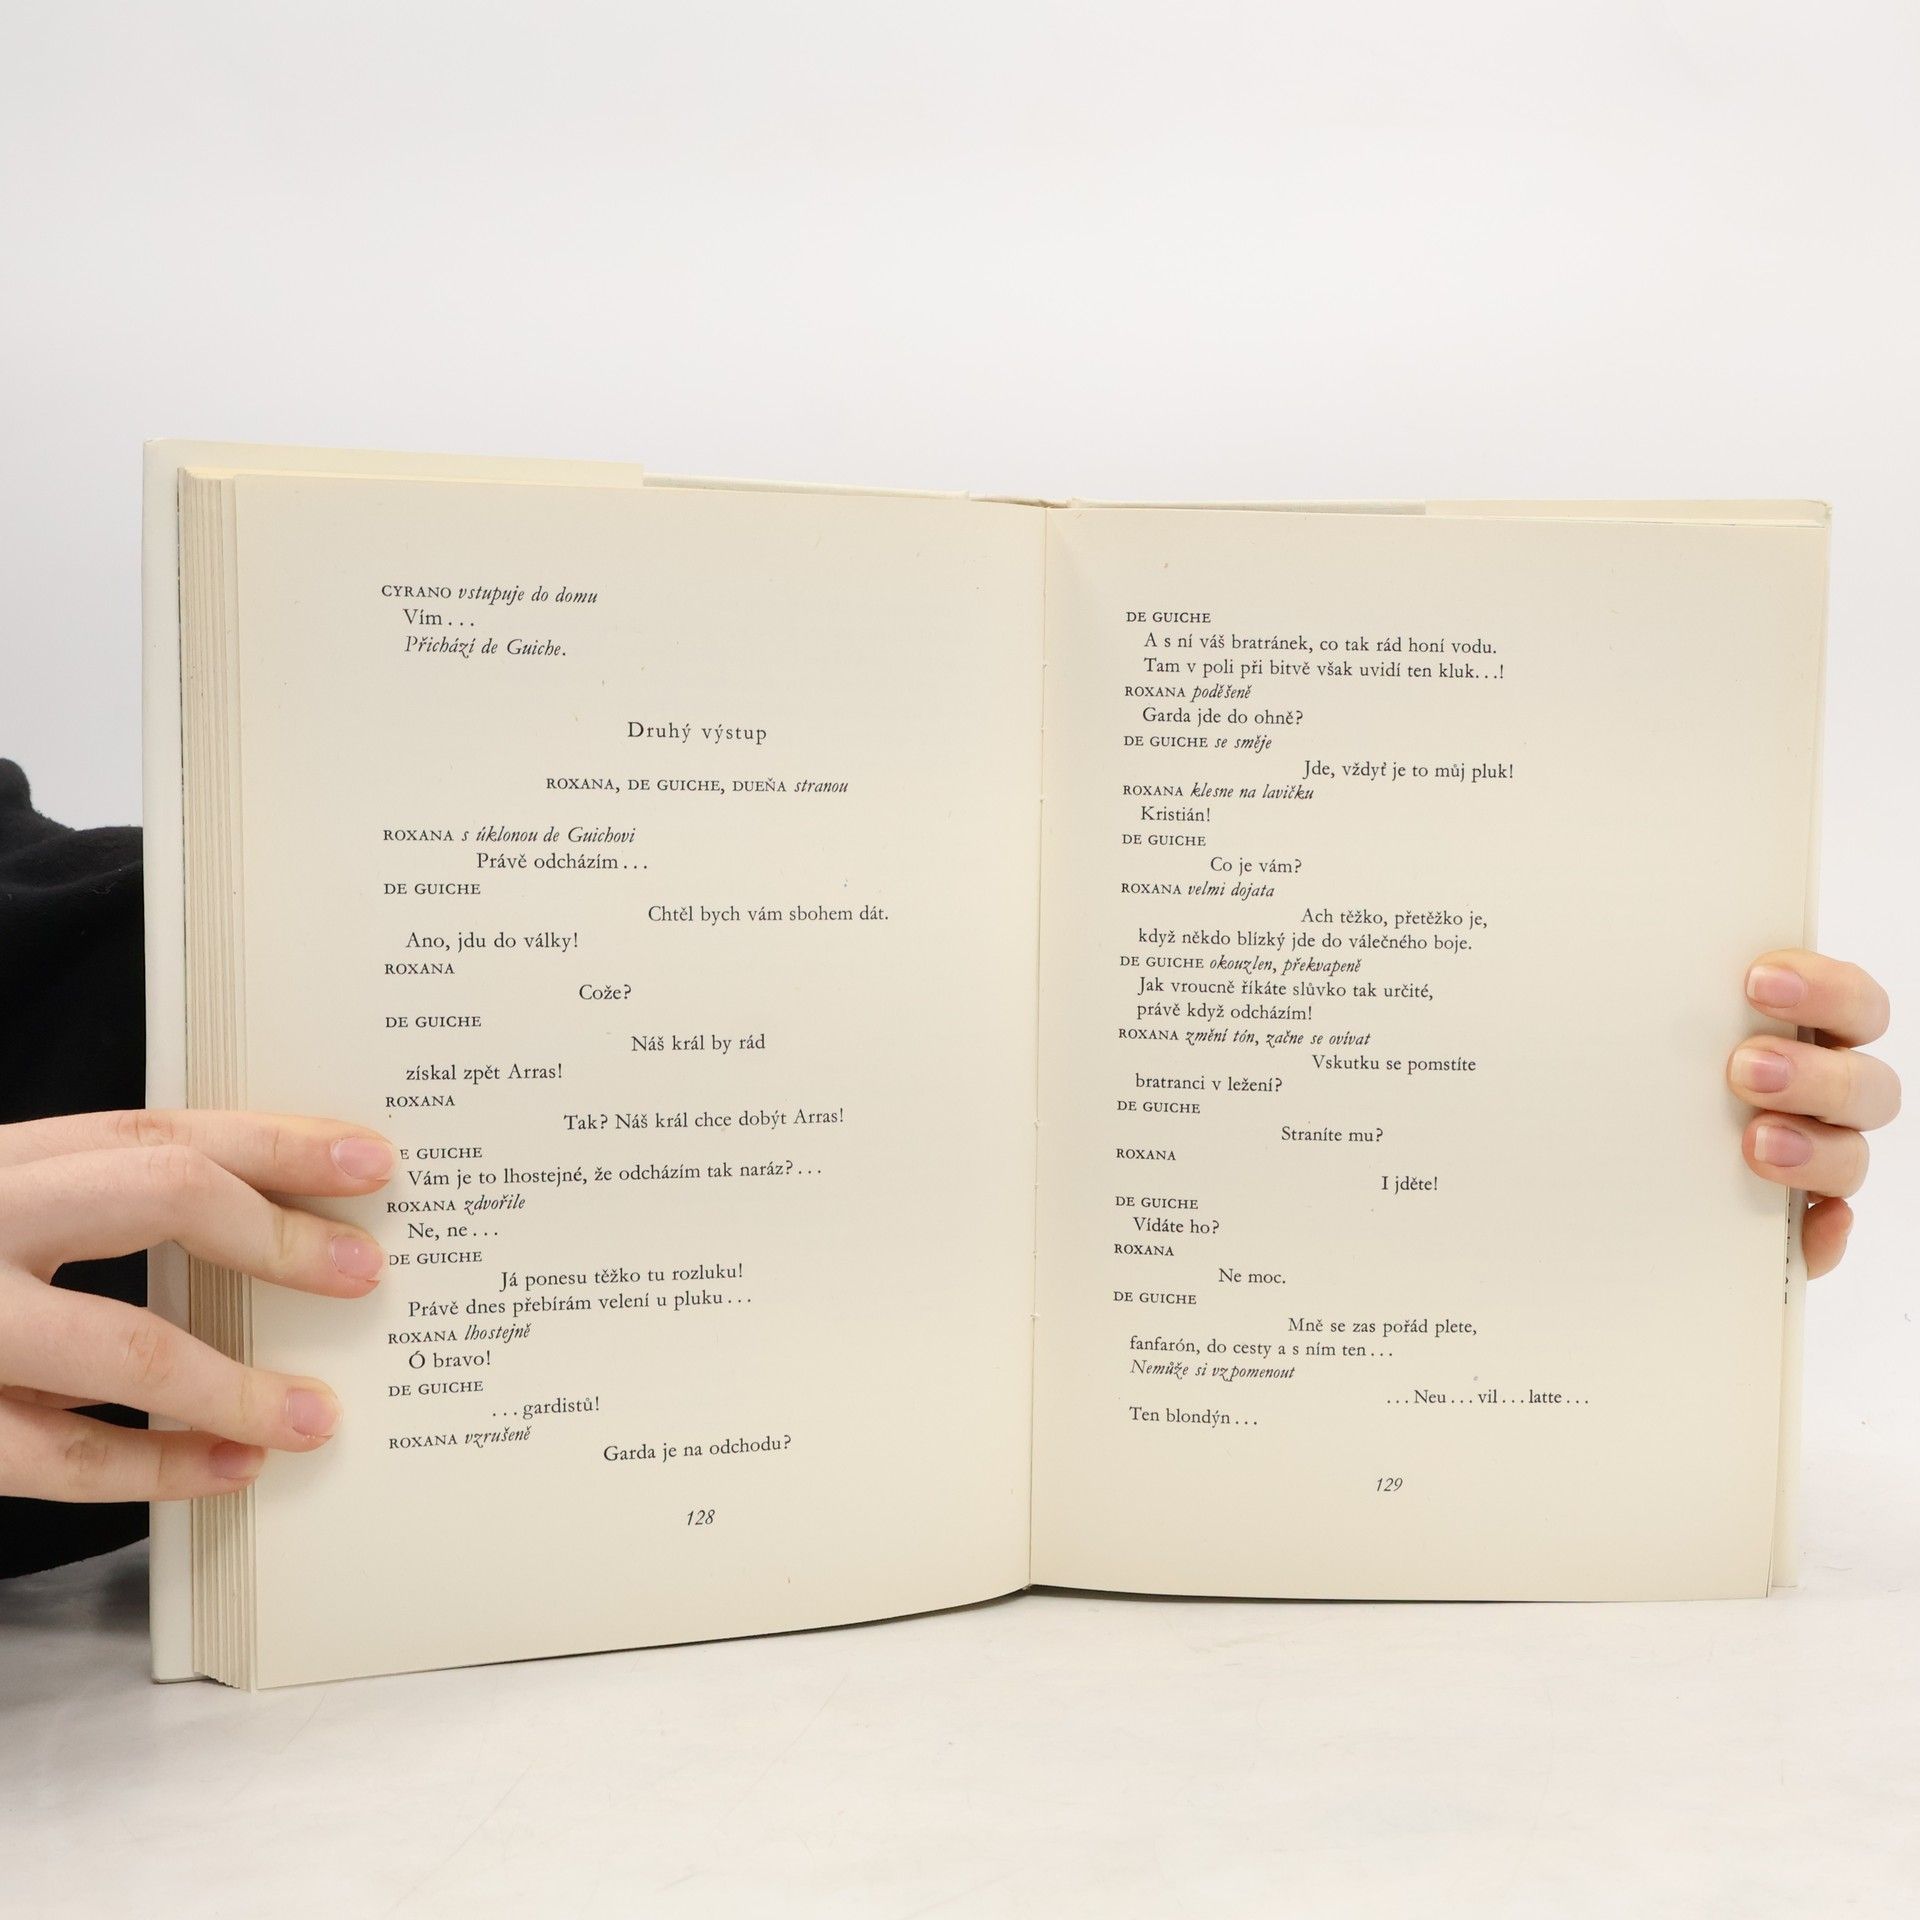 CYRANO vstupuje do domu
Vím...
Přichází de Guiche.
Druhý výstup
ROXANA, DE GUICHE, DUEŇA stranou
ROXANA s úklonou de Guichovi
Právě odcházím...
DE GUICHE
Chtěl bych vám sbohem dát.
Ano, jdu do války!
ROXANA
Cože?
DE GUICHE
Náš král by rád
získal zpět Arras!
ROXANA
Tak? Náš král chce dobýt Arras!
E GUICHE
Vám je to lhostejné, že odcházím tak naráz?...
ROXANA zdvořile
Ne, ne...
DE GUICHE
Já ponesu těžko tu rozluku!
Právě dnes přebírám velení u pluku...
ROXANA lhostejně
Ó bravo!
DE GUICHE
...gardistů!
ROXANA vzrušeně
Garda je na odchodu?
128
DE GUICHE
A s ní váš bratránek, co tak rád honí vodu.
Tam v poli při bitvě však uvidí ten kluk...!
ROXANA poděšeně
Garda jde do ohně?
DE GUICHE se směje
Jde, vždyť je to můj pluk!
ROXANA klesne na lavičku
Kristián!
DE GUICHE
Co je vám?
ROXANA velmi dojata
Ach těžko, přetěžko je,
když někdo blízký jde do válečného boje.
DE GUICHE okouzlen, překvapeně
Jak vroucně říkáte slůvko tak určité,
právě když odcházím!
ROXANA změní tón, začne se ovívat
Vskutku se pomstíte
bratranci v ležení?
DE GUICHE
Straníte mu?
ROXANA
I jděte!
DE GUICHE
Vídáte ho?
ROXANA
Ne moc.
DE GUICHE
Mně se zas pořád plete,
fanfarón, do cesty a s ním ten...
Nemůže si vzpomenout
...Neu...vil...latte...
Ten blondýn...
129